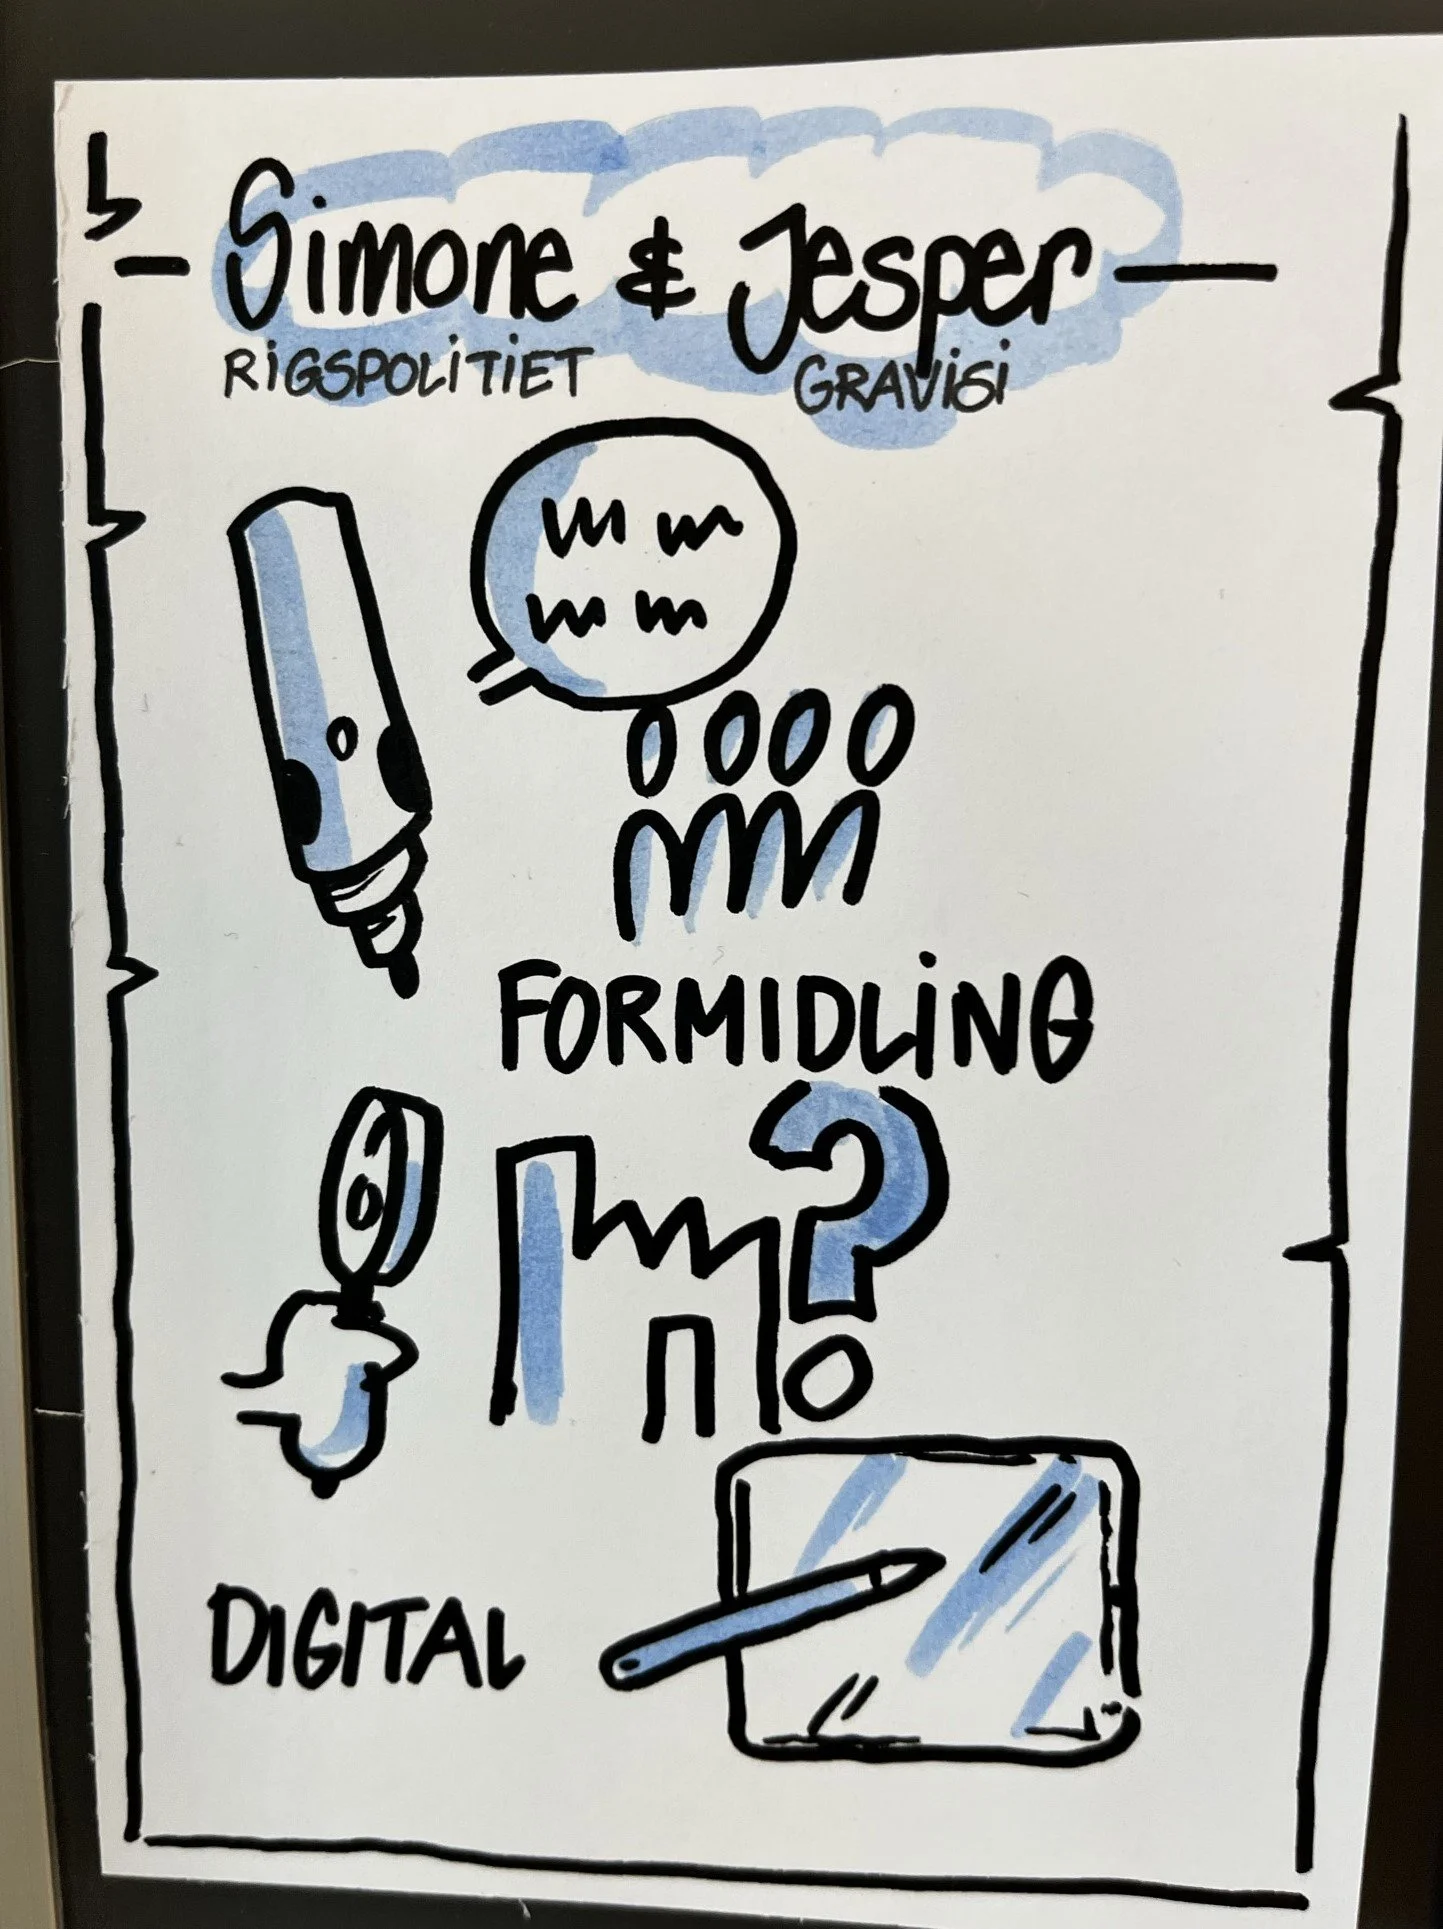 Simone & Jesper
RIGSPOLITIET GRAVISI
FORMIDLING
?
DIGITAL